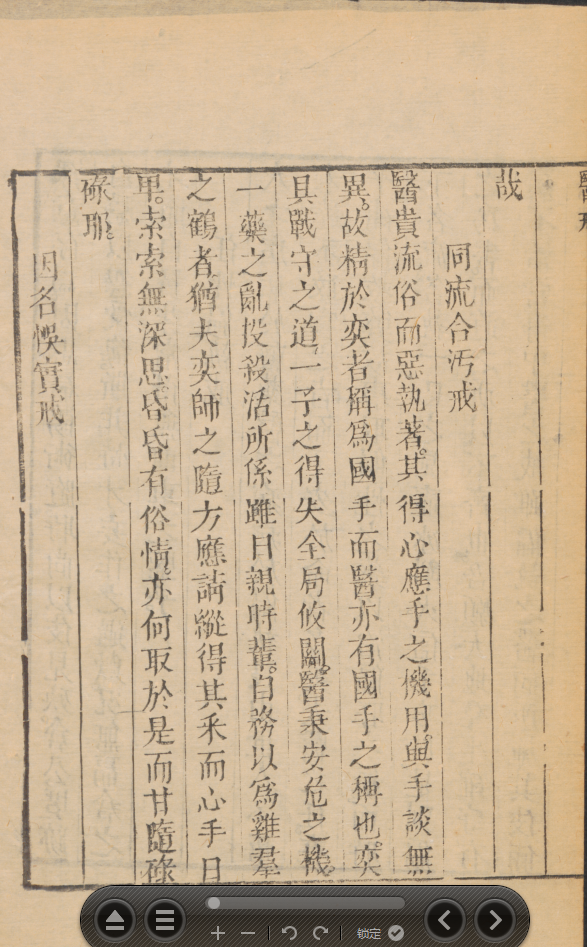 哉
同流合汚戒
醫貴流俗而惡執著。其得心應手之機用。與手談無
異。故精於奕者稱爲國手而醫亦有國手之稱也。奕
具戰守之道。一子之得失全局攸關。醫秉安危之機。
一藥之亂投殺活所係雖日親時輩。自務以爲雞羣
之鶴者。猶夫奕師之隨方應請縱得其釆而心手日
卑。索索無深思。昏昏有俗情。亦何取於是而甘隨碌
碌耶。
因名悞實戒
锁定